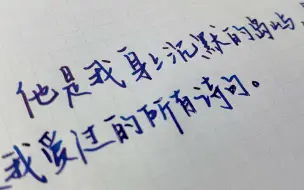 他是我身上沉默的岛屿，
我爱过的所有诗句。